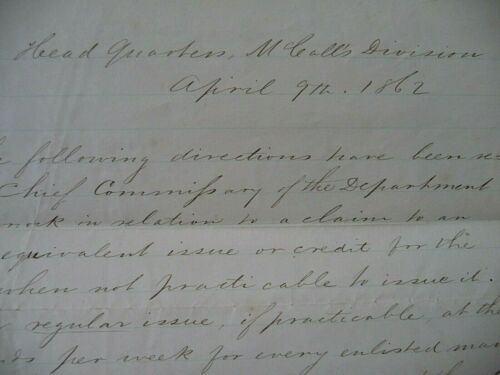 Head Quarters, McCall's Division
April 9th. 1862
following directions have been re=
Chief Commissary of the Department
in relation to a claim to an
equivalent issue or credit for the
when not practicable to issue it.
regular issue, if practicable, at the
per week for every enlisted man